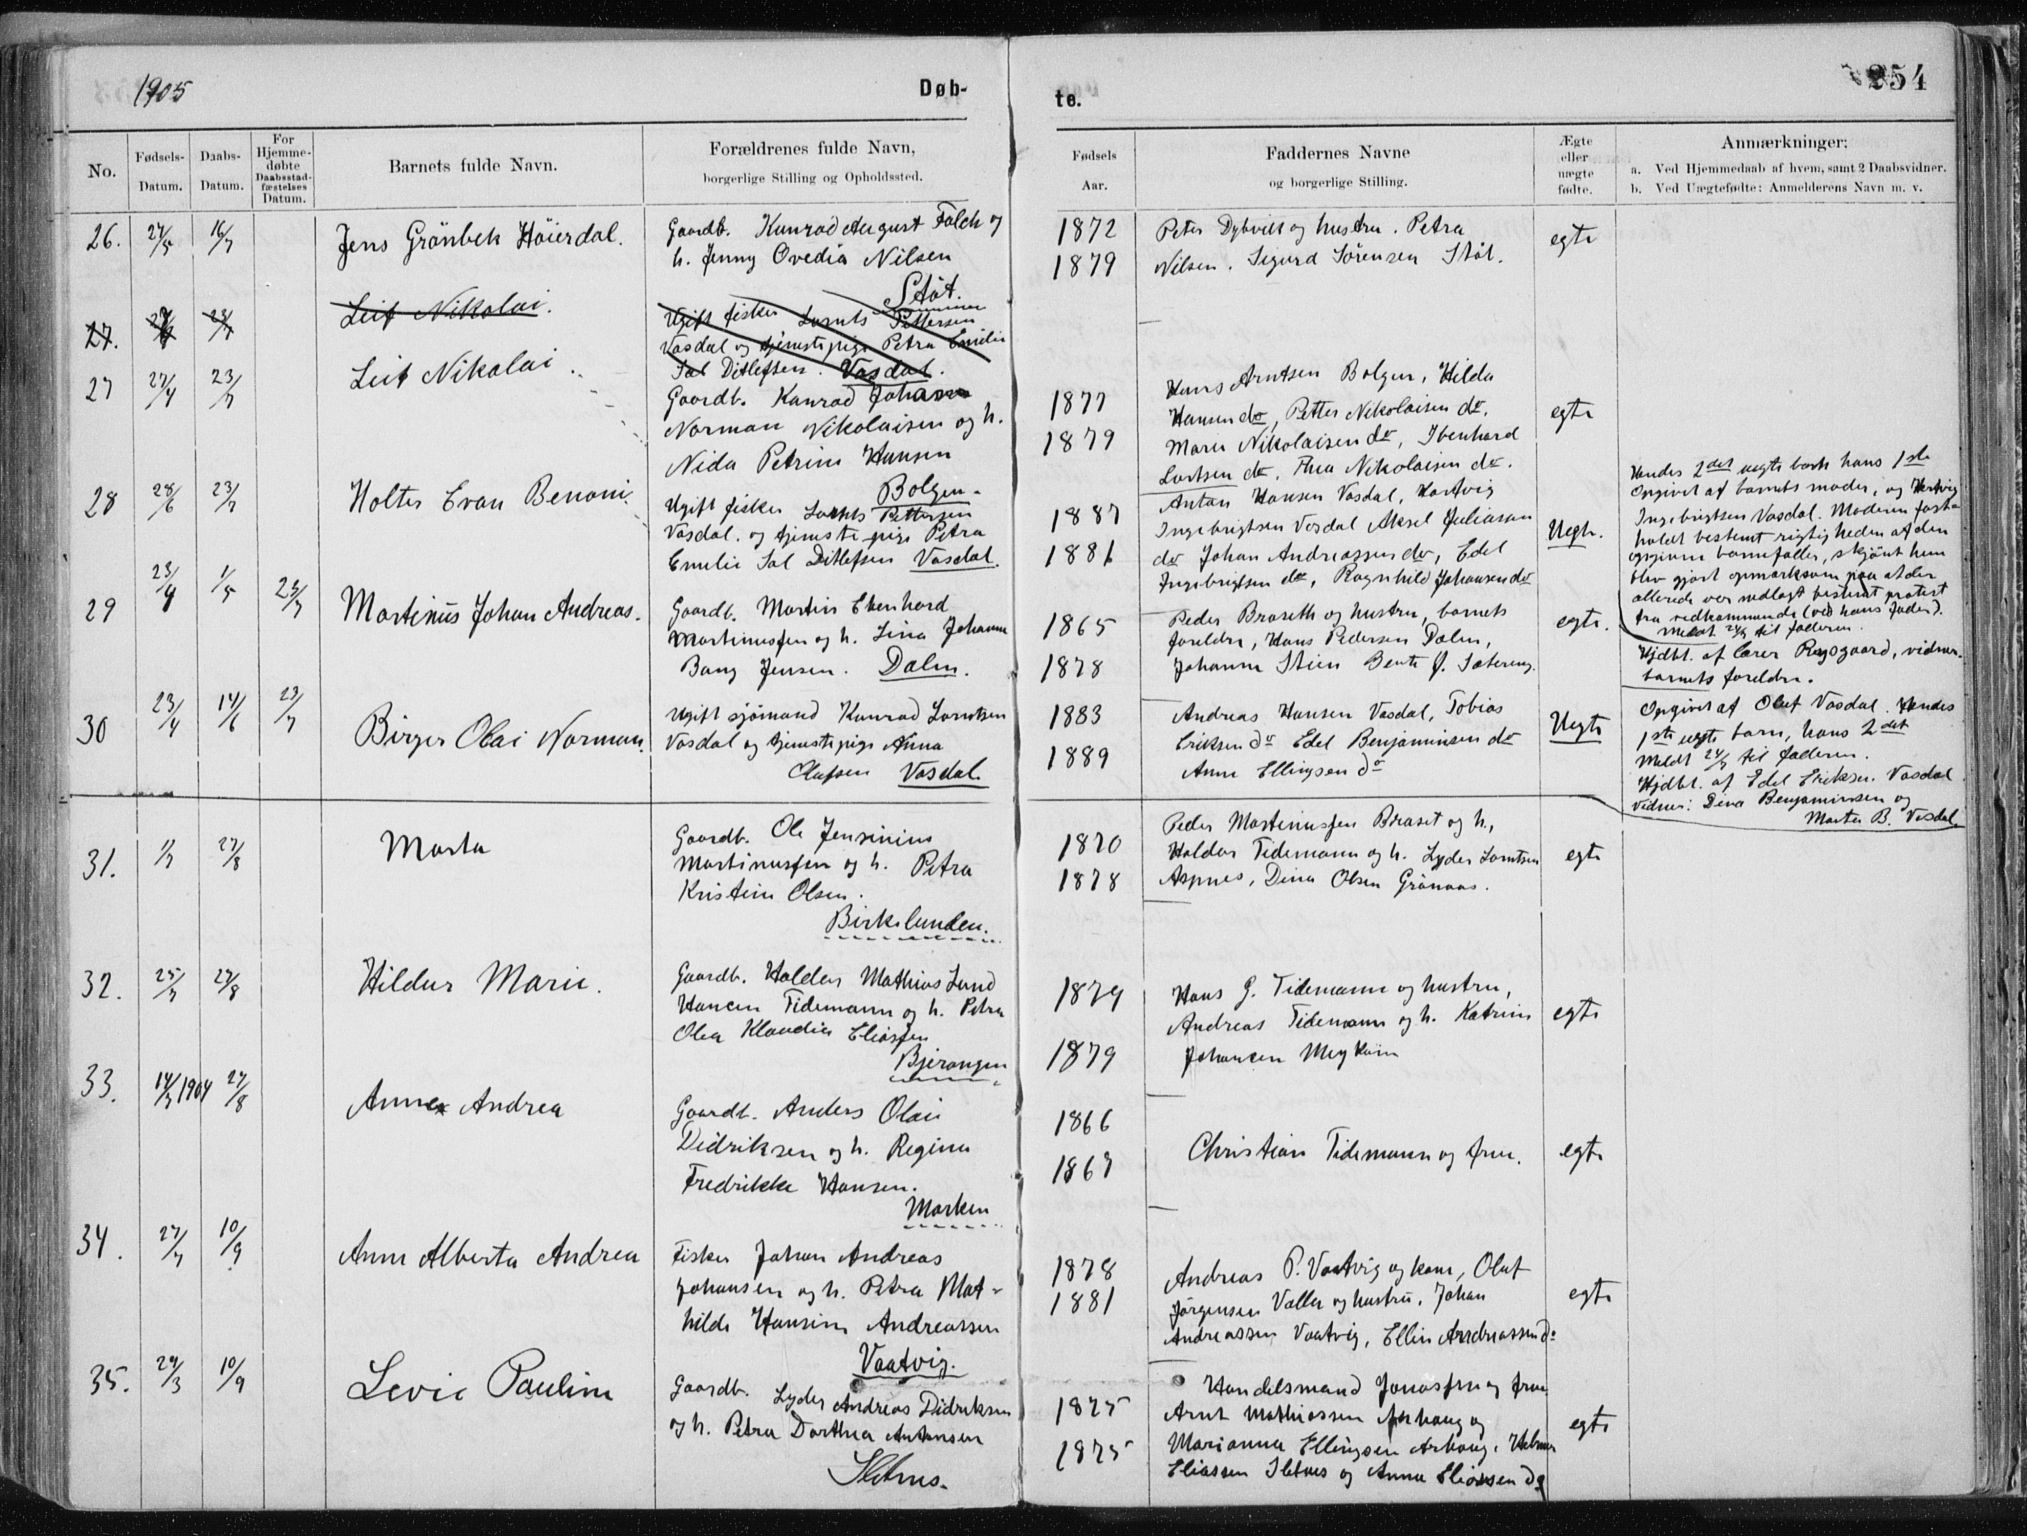 1905
Døb-
te.
254
No.
Fødsels-
Datum.
Daabs-
Datum.
For
Hjemme-
døbte
Daabsstad-
fæstelses
Datum.
Barnets fulde Navn.
Forældrenes fulde Navn,
borgerlige Stilling og Opholdssted.
Fødsels
Aar.
Faddernes Navne
og borgerlige Stilling.
Ægte
eller
uægte
fødte.
Anmærkninger:
a. Ved Hjemmedaab af hvem, samt 2 Daabsvidner.
b. Ved Uægtefødte: Anmelderens Navn m. v.
26.
27/5
16/7
Jens Grönbek Höierdal.
Gaardb. Konrad August Falch og
h. Jenny Ovedia Nilsen
Støt.
1872
1879
Peter Dybvik og hustru. Petra
Nilsen. Sigurd Sørensen Støt.
egte
27.
Leif Nikolai.
Ugift fisker Lornts Pettersen
Vasdal og tjenestepige Petra Emilie
Sal Ditlefsen. Vasdal.
27
27/4
23/7
Leif Nikolai
Gaardb. Konrad Johan
Norman Nikolaisen og h.
Nida Petrine Hansen
Bolgen.
1877
1879
Hans Arntsen Bolgen, Hilda
Hansen do, Petter Nikolaisen do.
Marie Nikolaisen do, Ibenhard
Lortsen do, Thea Nikolaisen do.
egte
28
28/6
23/7
Holter Evan Benoni
Ugift fisker Lornts Pettersen
Vasdal. og tjenestepige Petra
Emilie Sal Ditlefsen Vasdal.
1887
1881
Antan Hansen Vasdal, Hartvig
Ingebrigtsen Vasdal Aksel Juliasen
do Johan Andreassen do, Edel
Ingebrigtsen do, Ragnhild Johansen do
Uegte.
Hendes 2det uegte barn hans 1ste
Opgivet af barnets moder, og Hartvig
Ingebrigtsen Vasdal. Moderen fast-
holdt bestemt rigtigheden af den
opgivne barnefader, skjönt hun
blev gjort opmerksom paa at der
allerede var nedlagt bestemt protest
fra vedkommende (ved hans fader).
Meldt 24/7 til faderen.
29
23/4
1/5
23/7
Martinus Johan Andreas.
Gaardb. Martin Ebenhard
Martinussen og h. Lina Johanne
Bang Jensen. Dalen.
1865
1878
Peder Braseth og hustru, barnets
foreldre, Hans Pedersen Dalen,
Johanne Stien Bente J. Sætereng.
egte.
Hjdbt. af lærer Rygsgaard, vidner.
barnets foreldre.
30
23/4
14/6
23/7
Birger Olai Norman.
Ugift sjömand Konrad Lorntsen
Vasdal og tjenestepige Anna
Olufsen Vasdal.
1883
1889
Andreas Hansen Vasdal, Tobias
Eriksen do Edel Benjaminsen do
Anne Ellingsen do
Uegte
Opgivet af Oluf Vasdal. Hendes
1ste uegte barn, hans 2det
Meldt 24/7 til faderen.
Hjdbt. af Edel Eriksen. Vasdal
vidner: Dina Benjaminsen og
Marta B. Vasdal.
31.
1/7
27/8
Marta
Gaardb. Ole Jensinius
Martinussen og h. Petra
Kristine Olsen.
Birkelunden.
1870
1878
Peder Martinussen Braset og h,
Haldor Tidemann og h. Lyder Lorntsen
Aspnes, Dina Olsen Grönaas.
egte
32.
25/7
27/8
Hildur Marie.
Gaardb. Halder Mathias Lund
Hansen Tidemann og h. Petra
Olea Klaudia Eliassen
Bjerangen
1879
1879
Hans G. Tidemann og hustru,
Andreas Tidemann og h. Katrine
Johansen
egte
33.
14/7 1904
27/8
Anna Andrea
Gaardb. Anders Olai
Didriksen og h. Regine
Fredrikke Hansen.
Marken
1866
1867
Christian Tidemann og frue.
egte
34.
27/7
10/9
Anne Alberta Andrea
Fisker Johan Andreas
Johansen og h. Petra Mat-
hilde Hansine Andreassen
Vaatvig.
1878
1881
Andreas P. Vaatvig og kone, Oluf
Jørgensen Valla og hustru, Johan
Andreassen Vaatvig, Ellin Andreassen do
egte
35.
29/3
10/9
Levie Pauline
Gaardb. Lyder Andreas Didriksen
og h. Petra Dorthea Antonsen
Sletnes.
1875
1875
Handelsmand Jonassen og frue
Arnt Mathiassen Aahaug og
Marianna Ellingsen Arhaug,
Eliassen Sletnes og Anna Eliassen do
egte